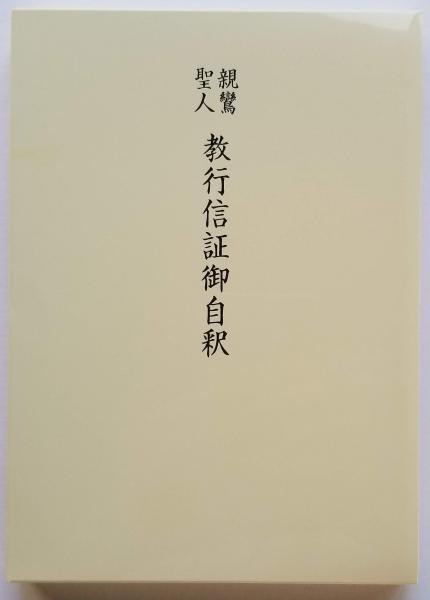 親鸞
聖人
教行信証御自釈